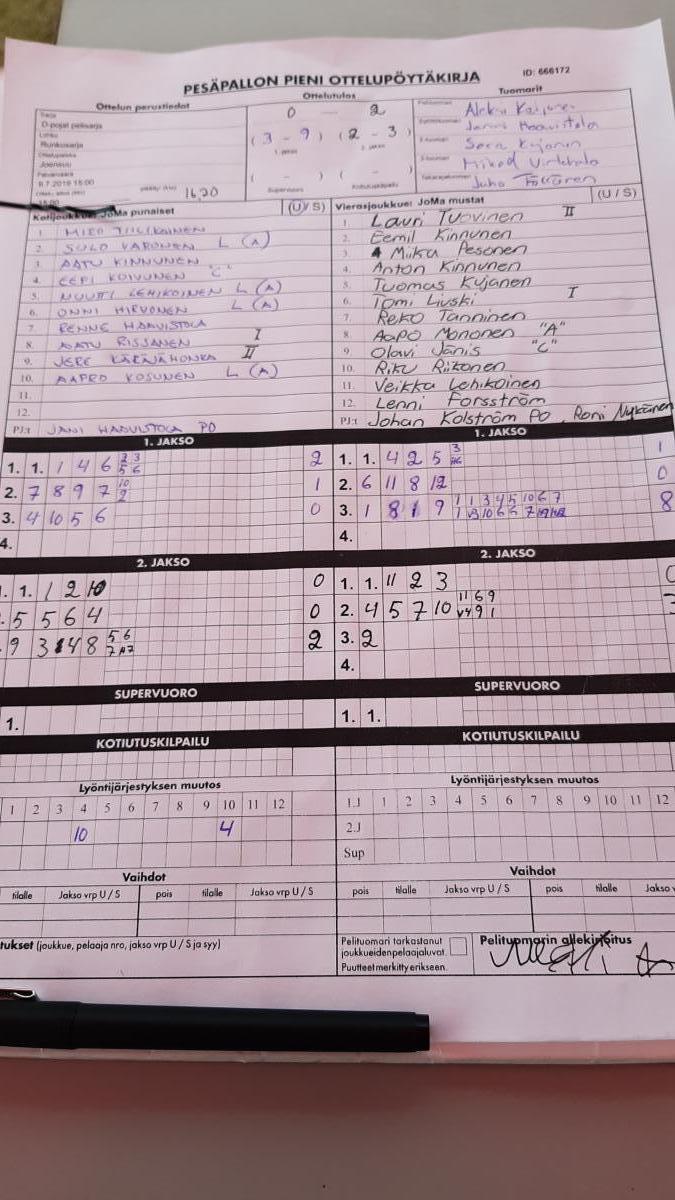 ID: 666172
PESÄPALLON PIENI OTTELUPÖYTÄKIRJA
Ottelun perustiedot
Sarja
D-pojat pelisarja
Lohko
Runkosarja
Ottelupaikka
Joensuu
Päivämäärä
15:00
16,20
Ottelutulos
0 - 2
(3 - 9) (2 - 3)
1. jakso 2. jakso
( - ) ( - )
Supervuoro Kotiutuskilpailu
Tuomarit
Pelituomari
Janne Haavistola
Kotijoukkue: JoMa punaiset (U/S)
1. MIRO TIILIKAINEN
2. SULO VARONEN L (A)
3. AATU KINNUNEN
4. EEPI KOIVUNEN "C"
5. NUUTTI LEHIKOINEN L (A)
6. ONNI HIRVONEN L (A)
7. RENNE HAAVISTOLA
8. AATU RISSANEN I
9. JERE KÄRÄJÄHONKA II
10. AAPRO KOSUNEN L (A)
11.
12.
PJ:t JANI HAAVISTOLA PO
Vierasjoukkue: JoMa mustat (U/S)
1. Lauri Tuovinen II
2. Eemil Kinnunen
3. Miika Pesonen
4. Anton Kinnunen
5. Tuomas Kujanen
6. Tomi Liuski I
7. Reko Tanninen
8. Aapo Mononen "A"
9. Olavi Jänis "C"
10. Riku Riikonen
11. Veikka Lehikoinen
12. Lenni Forsström
PJ:t Johan Kolström PO, Roni Nykänen
1. JAKSO
1. 1. 1 4 6 2 3 5 6 2
2. 7 8 9 7 10 2 1
3. 4 10 5 6 0
4.
1. JAKSO
1. 1. 4 2 5 3 1
2. 6 11 8 12 0
3. 1 8 1 9 8
4.
2. JAKSO
1. 1. 1 2 10 0
5 5 6 4 0
9 3 4 8 5 6 2
2. JAKSO
1. 1. 11 2 3
2. 4 5 7 10 11 6 9
3. 2
4.
SUPERVUORO
1.
SUPERVUORO
1. 1.
KOTIUTUSKILPAILU
KOTIUTUSKILPAILU
Lyöntijärjestyksen muutos
1 2 3 4 5 6 7 8 9 10 11 12
10 4
Lyöntijärjestyksen muutos
1.J 1 2 3 4 5 6 7 8 9 10 11 12
2.J
Sup
Vaihdot
tilalle Jakso vrp U / S pois tilalle Jakso vrp U / S
Vaihdot
pois tilalle Jakso vrp U / S pois tilalle Jakso
tukset (joukkue, pelaaja nro, jakso vrp U / S ja syy)
Pelituomari tarkastanut
joukkueidenpelaajaluvat.
Puutteet merkitty erikseen.
Pelituomarin allekirjoitus